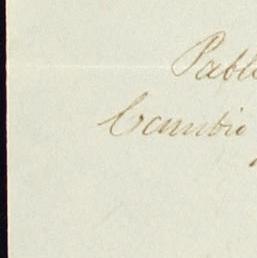 Pabl
Cambio